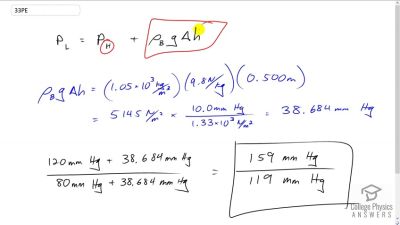 33PE
P_L = P_H + ρ_B g Δh
ρ_B g Δh = (1.05×10³ kg/m³)(9.8 N/kg)(0.500m)
= 5145 N/m² × 10.0 mm Hg / 1.33×10³ N/m² = 38.684 mm Hg
120 mm Hg + 38.684 mm Hg / 80 mm Hg + 38.684 mm Hg = 159 mm Hg / 119 mm Hg
College Physics
ANSWERS